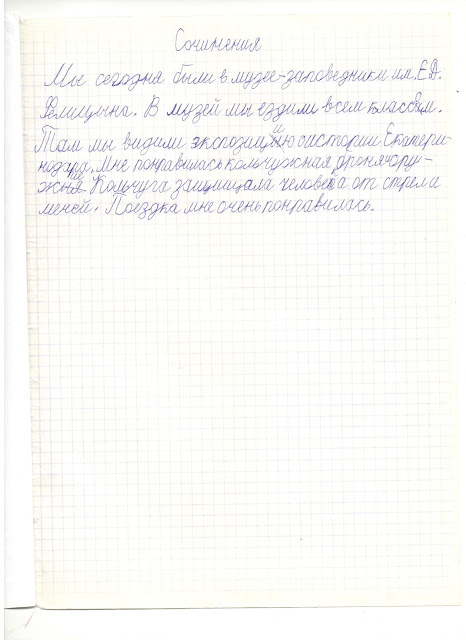 Сочинения
Мы сегодна были в музее-заповедники им. Е.Д.
Фелицына. В музей мы ездили всем классом.
Там мы видили экспозицию оистории Екатери-
нодара. Мне понравилась кольчужная
Кольчуга защищала человека от стрел а
мечей. Поездка мне очень понравилась.